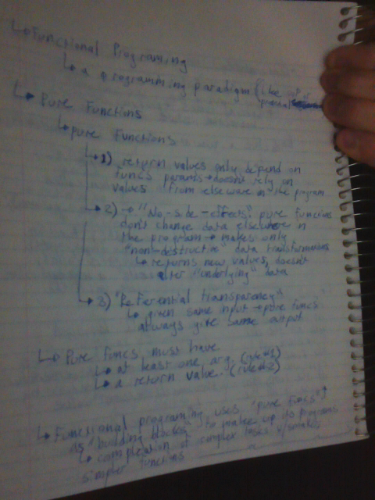 ↳ Functional Programing
↳ a programming paradigm (like
↳ Pure Functions
↳ pure functions
→ 1) return values only depend on
func's params → doesn't rely on
values from elsewhere in the program
→ 2) → "No-side-effects": pure functions
don't change data elsewhere in
the program → makes only
"non-destructive" data transformations
↳ returns new values, doesn't
alter "underlying" data
→ 3) "Referential transparency"
↳ given same input → pure funcs
always give same output
↳ Pure funcs must have
↳ at least one arg. (rule #1)
↳ a return value. (rule #2)
↳ Functional programing uses "pure funcs"
as "building blocks" to make up programs
↳ completion of complex tasks
simpler functions